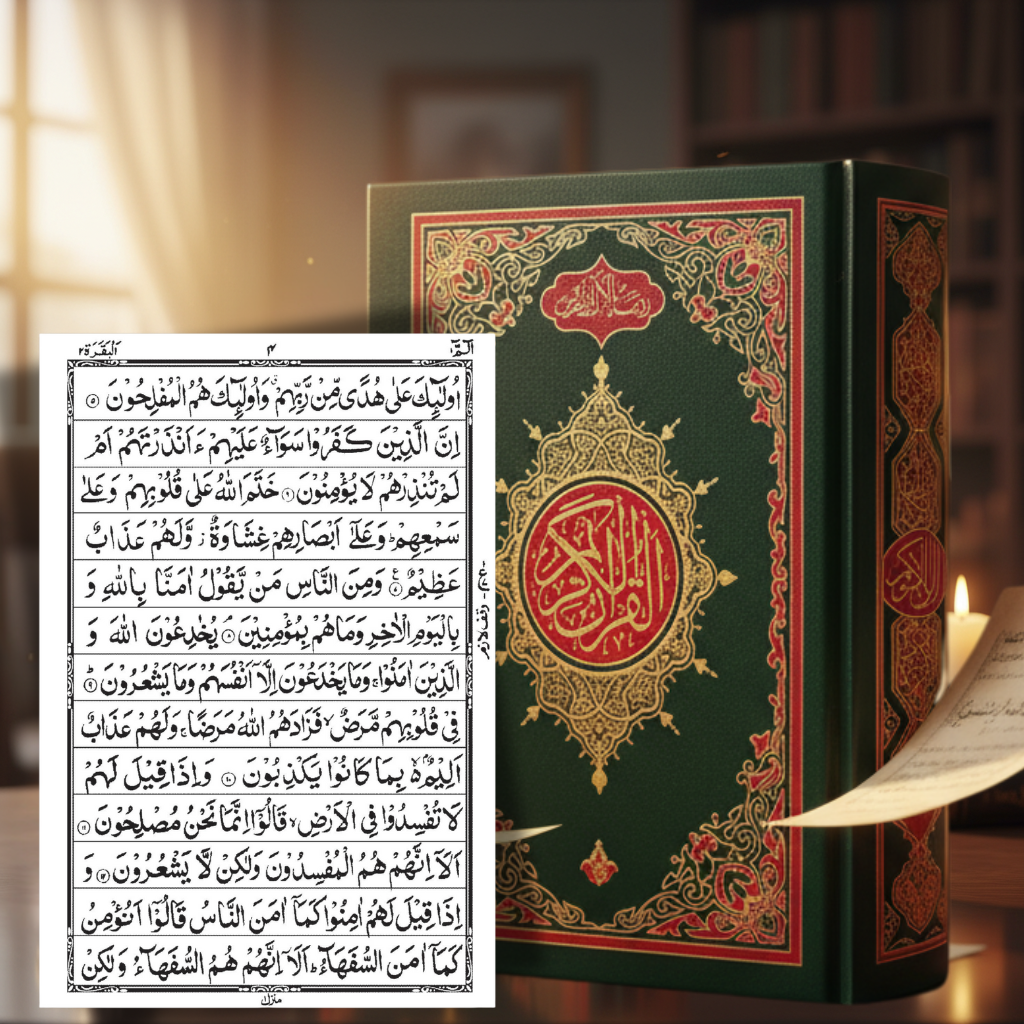 الٓمّٓ ۱
۴
اَلْبَقَرَة ۲
اُولٰٓئِكَ عَلٰى هُدًى مِّنْ رَّبِّهِمْ ۗ وَاُولٰٓئِكَ هُمُ الْمُفْلِحُوْنَ ۵
اِنَّ الَّذِيْنَ كَفَرُوْا سَوَآءٌ عَلَيْهِمْ ءَاَنْذَرْتَهُمْ اَمْ
لَمْ تُنْذِرْهُمْ لَا يُؤْمِنُوْنَ ۶ خَتَمَ اللّٰهُ عَلٰى قُلُوْبِهِمْ وَعَلٰى
سَمْعِهِمْ ؕ وَعَلٰٓى اَبْصَارِهِمْ غِشَاوَةٌ ز وَّلَهُمْ عَذَابٌ
عَظِيْمٌ ۷ ع وَمِنَ النَّاسِ مَنْ يَّقُوْلُ اٰمَنَّا بِاللّٰهِ وَ
بِالْيَوْمِ الْاٰخِرِ وَمَا هُمْ بِمُؤْمِنِيْنَ ۸ يُخٰدِعُوْنَ اللّٰهَ وَ
الَّذِيْنَ اٰمَنُوْا ۚ وَمَا يَخْدَعُوْنَ اِلَّآ اَنْفُسَهُمْ وَمَا يَشْعُرُوْنَ ؕ ۹
فِيْ قُلُوْبِهِمْ مَّرَضٌ ۙ فَزَادَهُمُ اللّٰهُ مَرَضًا ۚ وَلَهُمْ عَذَابٌ
اَلِيْمٌۢ ۙ بِمَا كَانُوْا يَكْذِبُوْنَ ۱۰ وَاِذَا قِيْلَ لَهُمْ
لَا تُفْسِدُوْا فِي الْاَرْضِ ۙ قَالُوْٓا اِنَّمَا نَحْنُ مُصْلِحُوْنَ ۱۱
اَلَآ اِنَّهُمْ هُمُ الْمُفْسِدُوْنَ وَلٰكِنْ لَّا يَشْعُرُوْنَ ۱۲ وَ
اِذَا قِيْلَ لَهُمْ اٰمِنُوْا كَمَآ اٰمَنَ النَّاسُ قَالُوْٓا اَنُؤْمِنُ
كَمَآ اٰمَنَ السُّفَهَآءُ ؕ اَلَآ اِنَّهُمْ هُمُ السُّفَهَآءُ وَلٰكِنْ
منزل
وقف لازم
القرآن الكريم